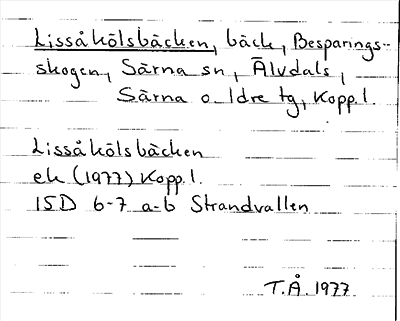 Lissåkölsbäcken, bäck, Besparings-
skogen, Särna sn, Älvdals,
Särna o Idre tg, Kopp.l.
Lissåkölsbäcken
ek (1977) Kopp.l.
15D 6-7 a-b Strandvallen
T.Å. 1977